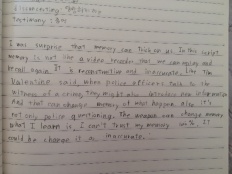 I was surprise that memory can trick on us. In this script
memory is not like a video recorder that we can replay and
recall again. It is reconstructive and inaccurate. Like Tim
Valentine said, when police officers talk to the
witness of a crime, they might introduce new information
And that can change memory of what happen. Also it's
not only police questioning. The weapon can change memory
What I learn is I can't trust my memory 100% It
could be change it or inaccurate.